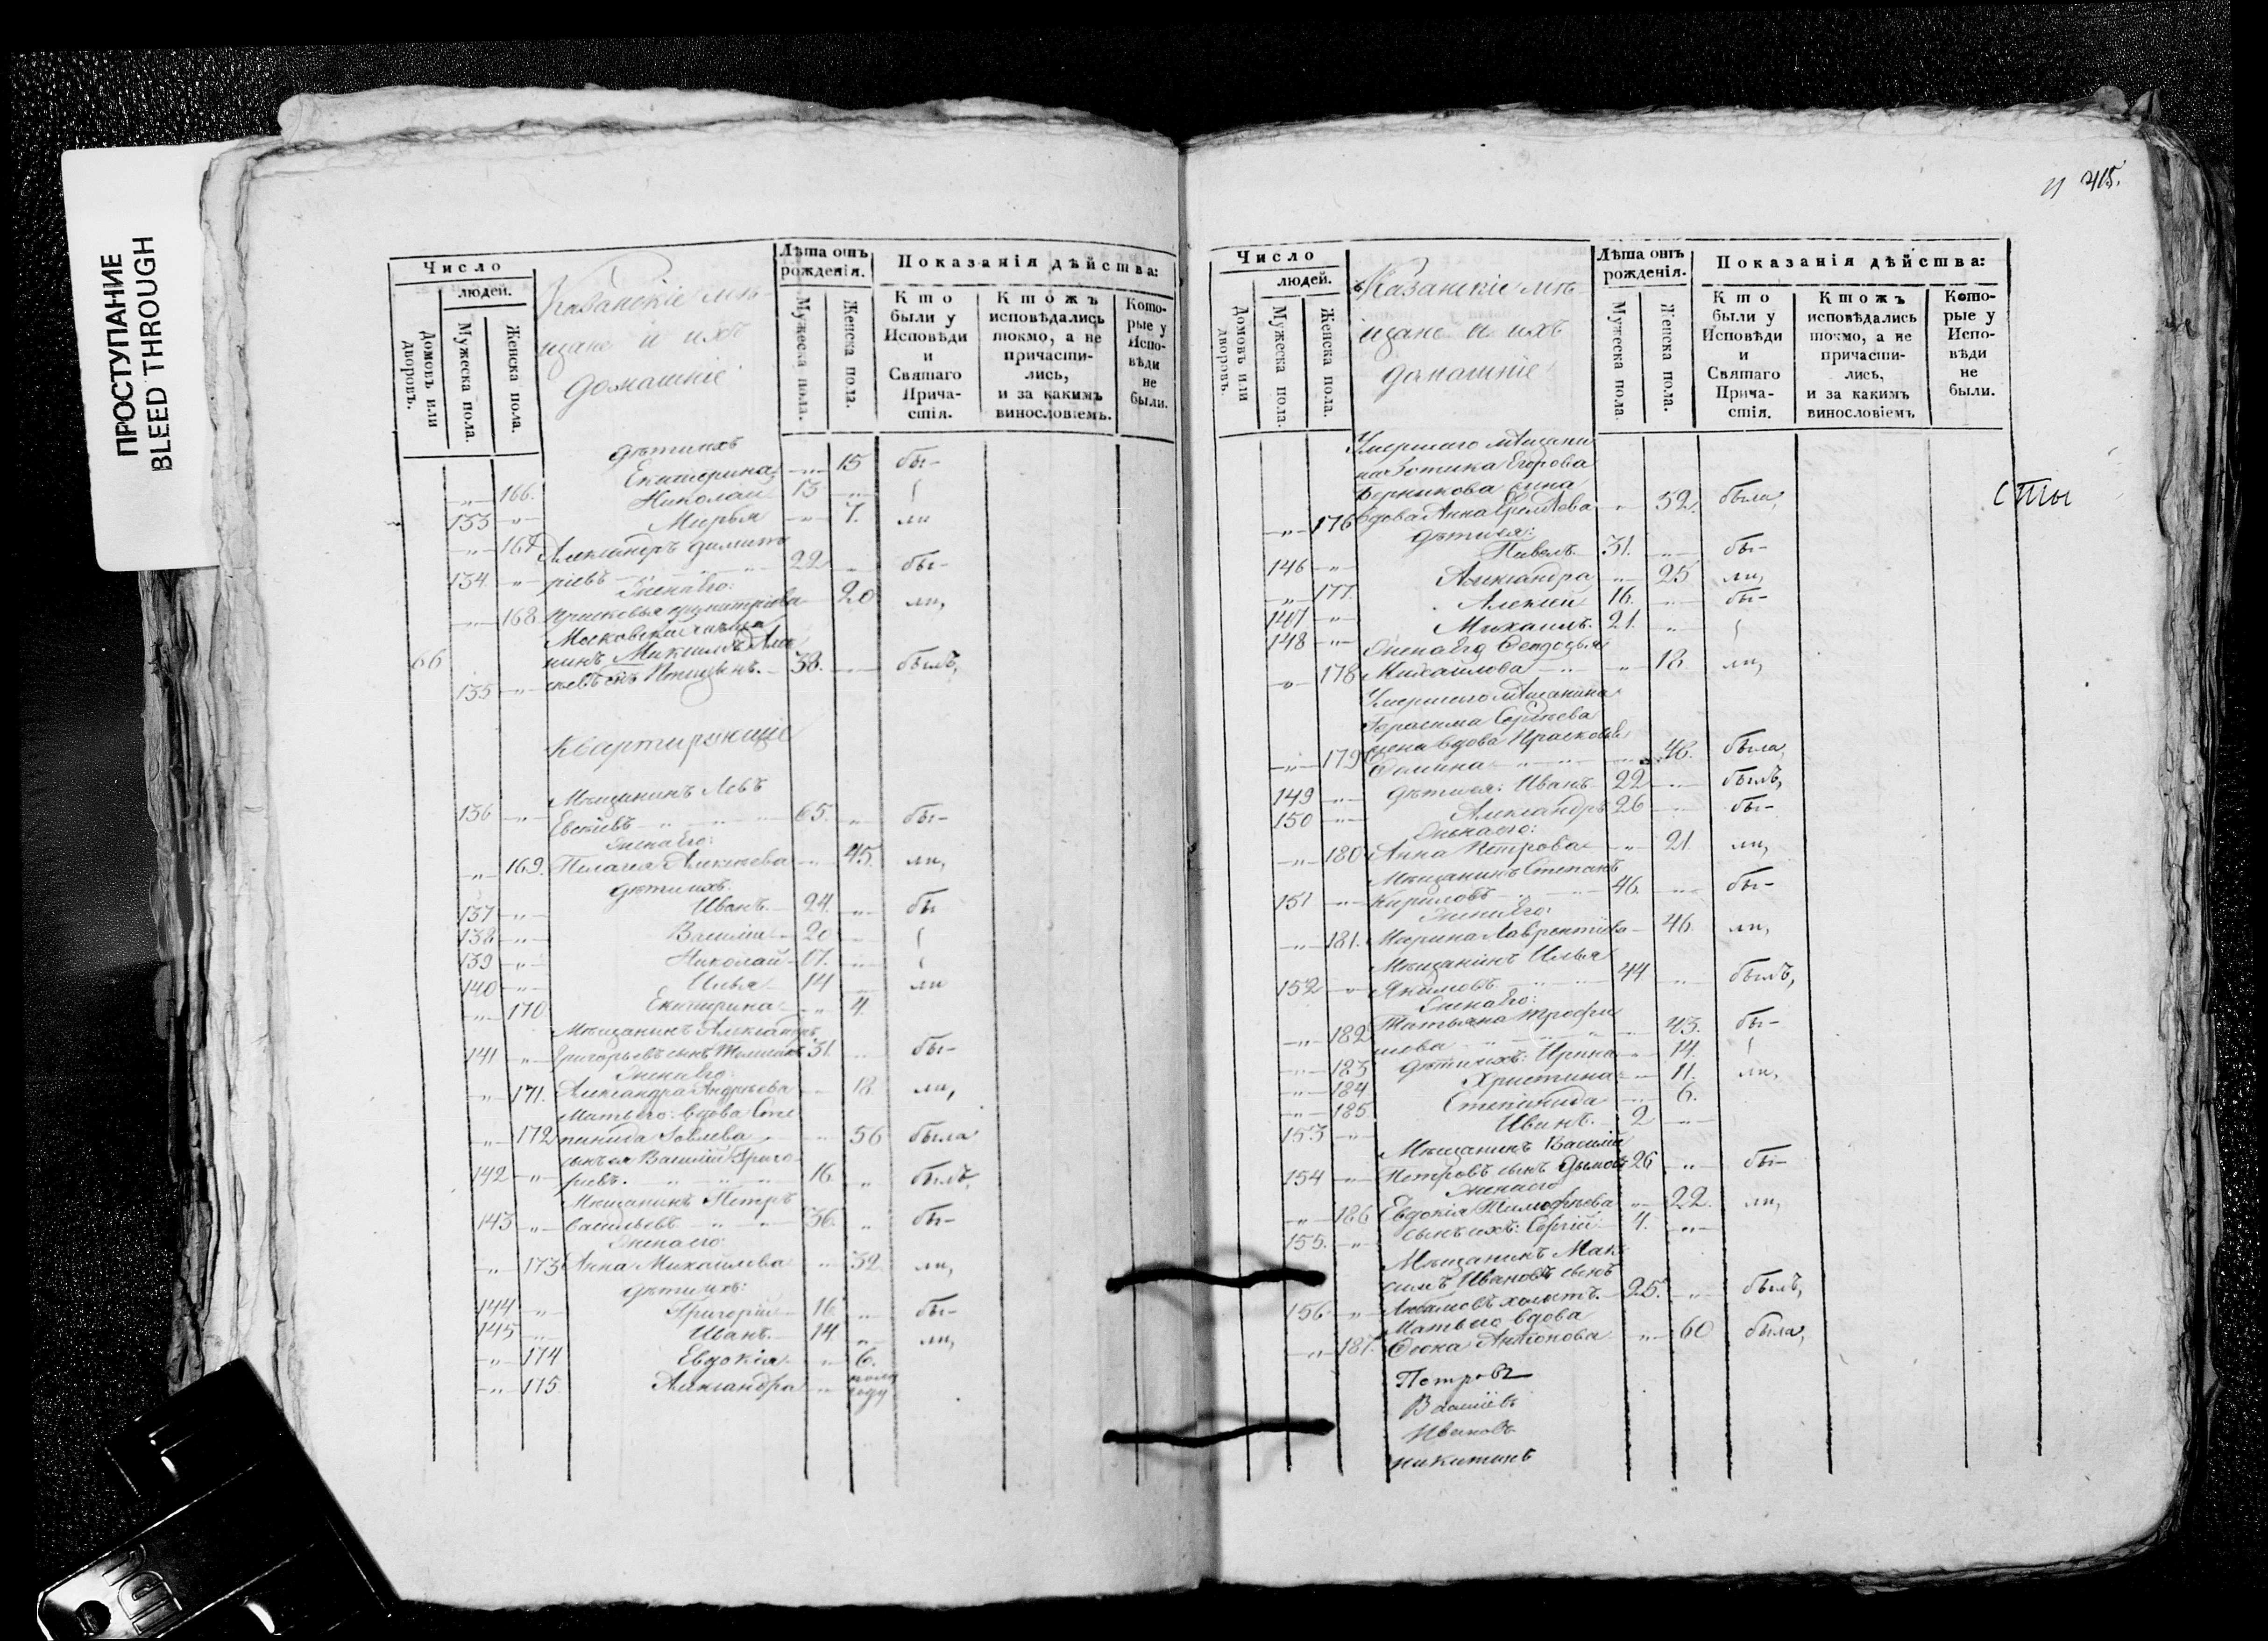 ПРОСТУПАНИЕ
BLEED THROUGH
Число
людей.
Домовъ или дворовъ.
Мужеска пола.
Женска пола.
Казанскіе мѣ-
щане и ихъ
домашніе
Лѣта отъ рожденія.
Мужеска пола.
Женска пола.
Показанія дѣйства:
Кто были у Исповѣди и Святаго Прича-стія.
Ктожъ исповѣдались токмо, а не причасти-лись, и за какимъ винословіемъ.
Кото-рые у Испо-вѣди не были.
дѣти ихъ
166. Екатерина 15 бы-
133 Николай 13
167 Марья 7. ли
Александръ Димит
134 ріевъ 22 бы-
Жена его:
168 Прасковья Димитріева 20 ли,
66
135 38. былъ,
Квартирующіе
Мѣщанинъ Левъ
136 65. бы-
Жена его:
169. Пелагея Алексѣева 45. ли,
дѣти ихъ:
137 Иванъ. 24. бы
138 Василій 20
139 Николай 17.
140 Илья 14 ли
170 Екатерина 4.
Мѣщанинъ Александръ
141 Григорьевъ сынъ 31. бы-
Жена его:
171. Александра Андреева 18. ли,
Мать его: вдова Сте
172 панида Іовлева 56 была
сынъ ея Василій Григо-
142 рьевъ. 16. былъ,
Мѣщанинъ Петръ
143 Васильевъ 36. бы-
Жена его:
173 Анна Михайлова 32. ли,
дѣти ихъ:
144 Григорій 16 бы-
145 Иванъ. 14 ли,
174 Евдокія 6.
175 Александра полу году
415.
Число
людей.
Домовъ или дворовъ.
Мужеска пола.
Женска пола.
Казанскіе мѣ-
щане и ихъ
домашніе
Лѣта отъ рожденія.
Мужеска пола.
Женска пола.
Показанія дѣйства:
Кто были у Исповѣди и Святаго Прича-стія.
Ктожъ исповѣдались токмо, а не причасти-лись, и за какимъ винословіемъ
Кото-рые у Испо-вѣди не были.
Умершаго мѣщани
на Зотика Егорова
176 вдова Анна 52. была,
дѣти ея:
146 Павелъ. 31. бы-
177 Александра 25 ли,
147 Алексей 16. бы-
148 Михаилъ. 21.
Жена его Феодосья
178 Михайлова 18 ли,
Умершаго мѣщанина
Герасима Сергѣева
жена вдова Прасковья
179 Фомина 48. была,
149 дѣти ея: Иванъ 22 былъ,
150 Александръ 26 бы-
Жена его:
180 Анна Петрова 21 ли,
Мѣщанинъ Степанъ
151 Кириловъ 46. бы-
Жена его:
181. Марина Лаврентьева 46. ли,
Мѣщанинъ Илья
152 Якимовъ 44 былъ,
Жена его:
182 Татьяна Трофи
мова 43. бы-
183 дѣти ихъ: Ирина 14.
184 Христина 11. ли,
185 Степанида 6.
153 Иванъ. 2
Мѣщанинъ Василій
154 Петровъ сынъ 26 бы-
Жена его
186 Евдокія Тимофѣева 22. ли,
155. сынъ ихъ: Сергій
Мѣщанинъ Мак-
симъ Ивановъ сынъ
156 холостъ. 25. былъ,
Мать его вдова
187. Антонова 60 была,
Петровъ
Ивановъ
Никитинъ
сты